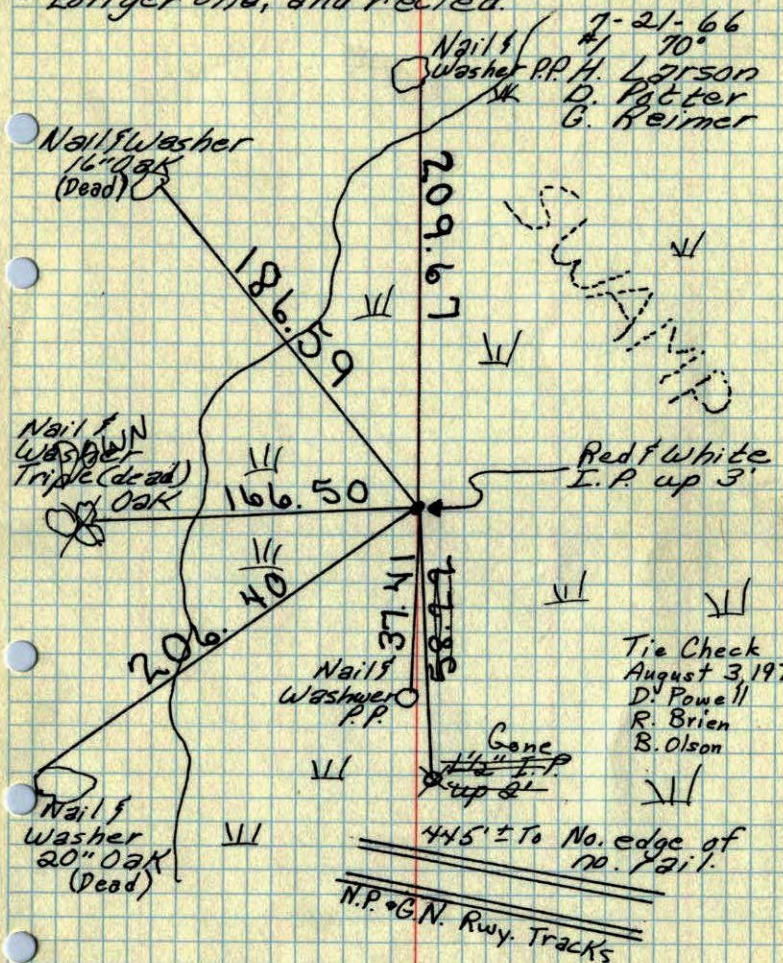 Longer one, and retied.
7-21-66
#1 70°
H. Larson
D. Potter
G. Reimer
Nail &
Washer P.P.
Nail & Washer
16" Oak
(Dead)
209.67
SWAMP
186.59
Nail &
Washer
DOWN
Triple (dead)
Oak
166.50
Red & White
I.P. up 3'
206.40
37.41
Nail &
Washwer
P.P.
Tie Check
August 3, 197
D. Powell
R. Brien
B. Olson
Gone
1½" I.P.
up 2'
Nail &
Washer
20" Oak
(Dead)
445' ± To No. edge of
no. rail.
N.P. & G.N. Rwy. Tracks